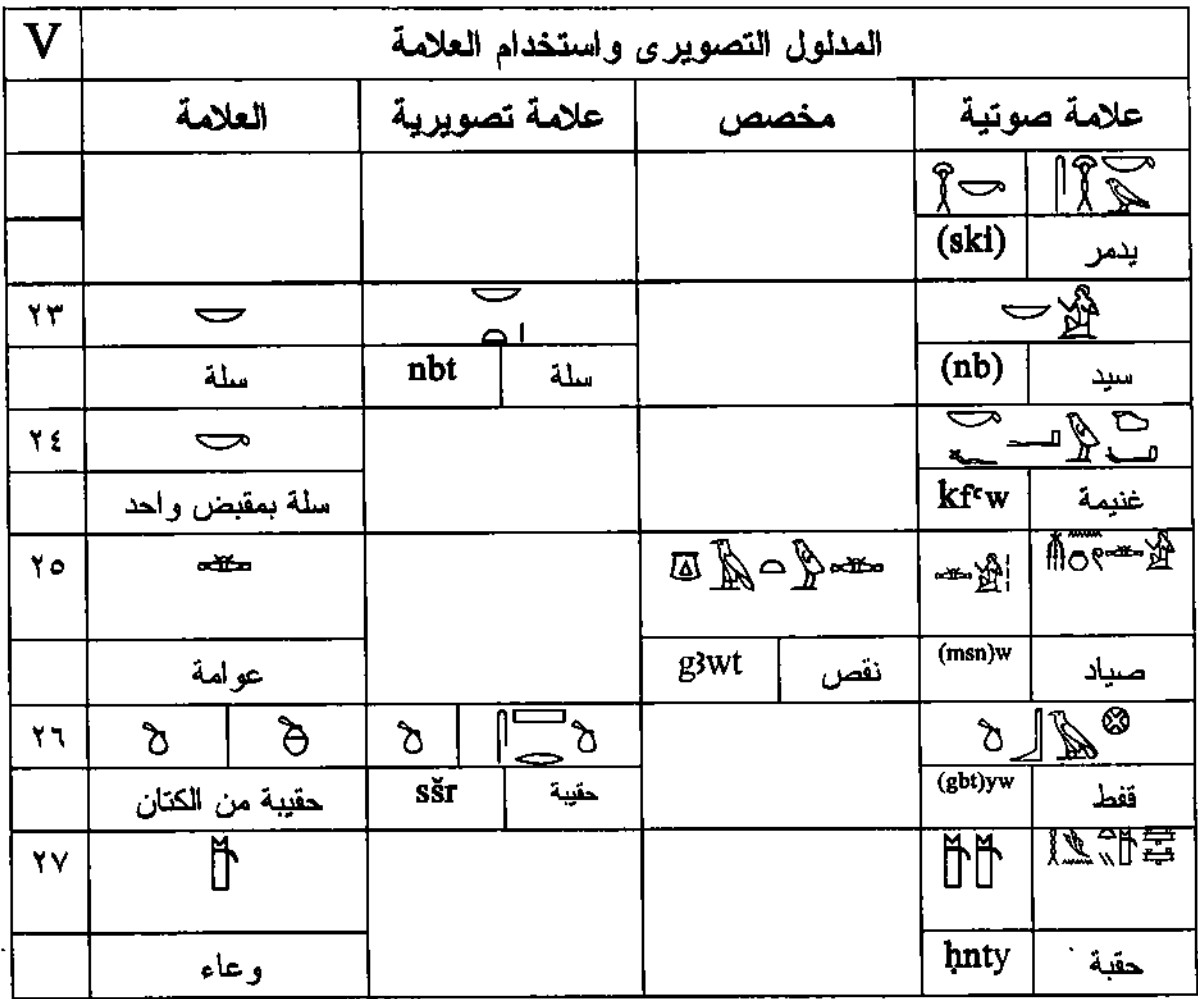 V المدلول التصويرى واستخدام العلامة
العلامة علامة تصويرية مخصص علامة صوتية
(ski) يدمر
٢٣
سلة nbt سلة (nb) سيد
٢٤
سلة بمقبض واحد kfꜥw غنيمة
٢٥
عوامة gꜣwt نقص (msn)w صياد
٢٦
حقيبة من الكتان sšr حقيبة (gbt)yw قفط
٢٧
وعاء ḥnty حقبة